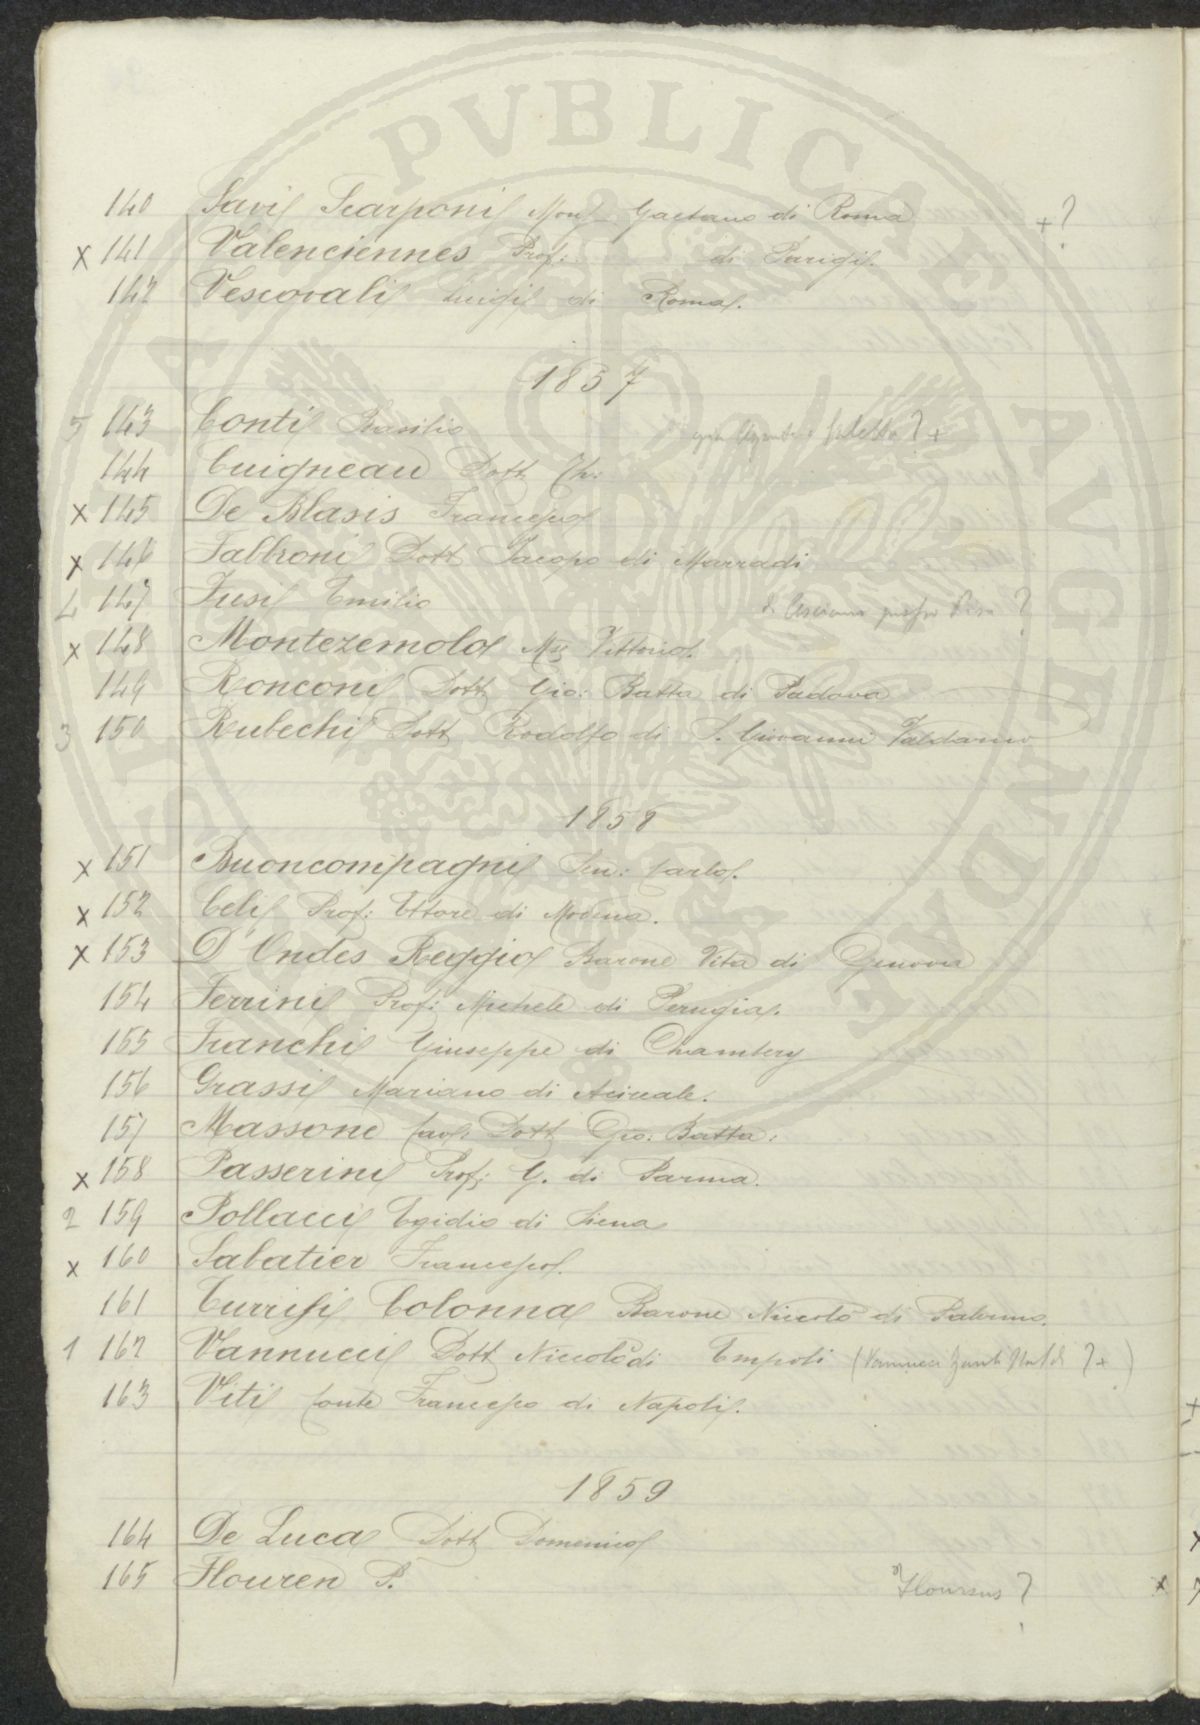 PVBLICAE AVGENDAE
140 Savi Scarponi Mons. Gaetano di Roma + ?
x 141 Valenciennes Prof: di Parigi.
142 Vescovali Luigi di Roma.
1857
5 143 Conti Basilio ? +
144 Cuigneau Dott Ch:
x 145 De Blasis Francesco
x 146 Fabbroni Dott Jacopo di Marradi
147 Fusi Emilio di Asciano presso Pisa ?
x 148 Montezemolo Mse Vittorio.
149 Ronconi Dott Gio: Batta di Padova
3 150 Rubechi Dott Rodolfo di S. Giovanni Valdarno
1858
x 151 Buoncompagni Sen: Carlo.
x 152 Celi Prof: Ettore di Modena.
x 153 D'Ondes Reggio Barone Vita di Genova
154 Ferrini Prof: Michele di Perugia.
155 Franchi Giuseppe di Chambery
156 Grassi Mariano di Acireale.
157 Massone Cav. Dott Gio: Batta:
x 158 Passerini Prof: G. di Parma.
2 159 Pollacci Egidio di Siena
x 160 Sabatier Francesco.
161 Turrisi Colonna Barone Niccolò di Palermo.
1 162 Vannucci Dott Niccolò di Empoli (Vannucci ? +)
163 Viti Conte Francesco di Napoli.
1859
164 De Luca Dott Domenico
165 Flouren P. Flourens ? x